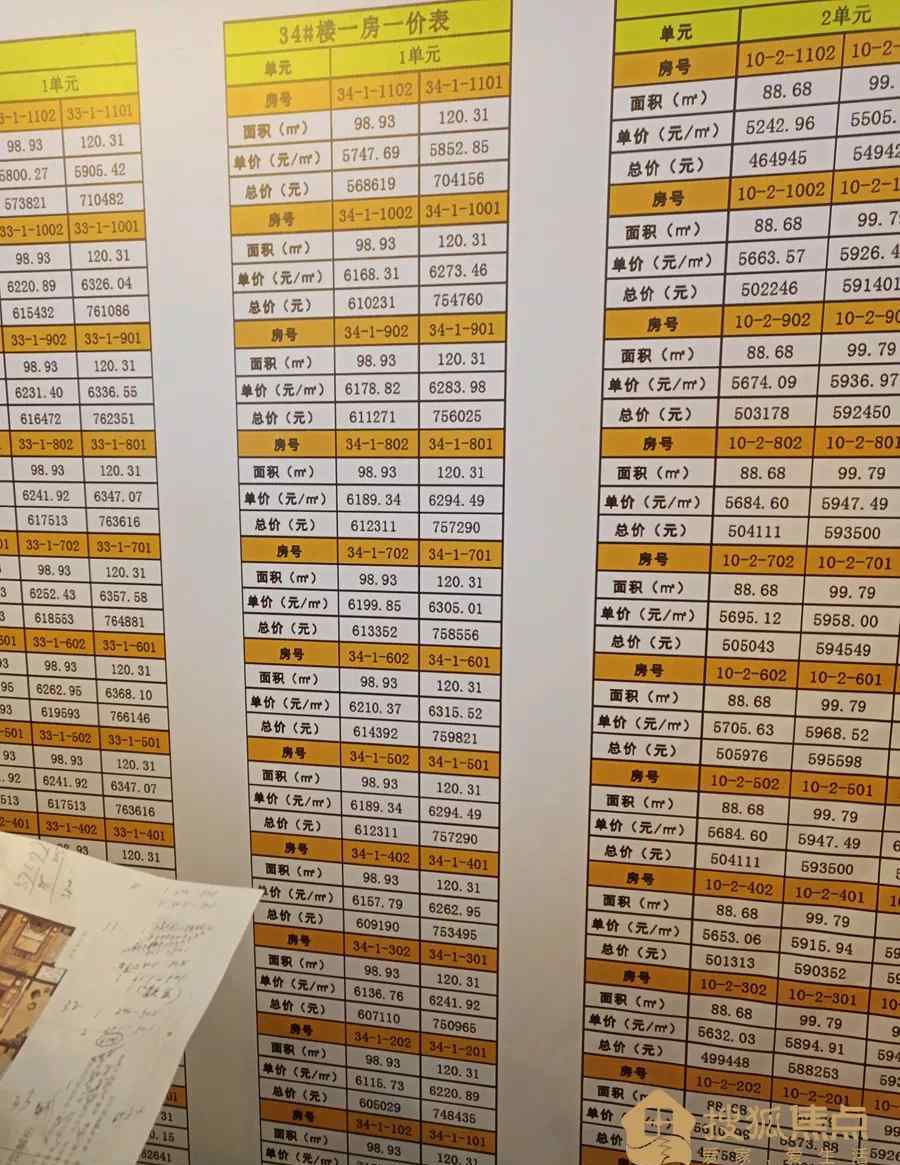 1单元
33-1-1102 33-1-1101
98.93 120.31
5800.27 5905.42
573821 710482
33-1-1002 33-1-1001
98.93 120.31
6220.89 6326.04
615432 761086
33-1-902 33-1-901
98.93 120.31
6231.40 6336.55
616472 762351
33-1-802 33-1-801
98.93 120.31
6241.92 6347.07
617513 763616
33-1-702 33-1-701
98.93 120.31
6252.43 6357.58
618553 764881
33-1-602 33-1-601
98.93 120.31
6262.95 6368.10
619593 766146
33-1-502 33-1-501
98.93 120.31
6241.92 6347.07
617513 763616
33-1-402 33-1-401
120.31
34#楼一房一价表
单元 1单元
房号 34-1-1102 34-1-1101
面积（㎡） 98.93 120.31
单价（元/㎡） 5747.69 5852.85
总价（元） 568619 704156
房号 34-1-1002 34-1-1001
面积（㎡） 98.93 120.31
单价（元/㎡） 6168.31 6273.46
总价（元） 610231 754760
房号 34-1-902 34-1-901
面积（㎡） 98.93 120.31
单价（元/㎡） 6178.82 6283.98
总价（元） 611271 756025
房号 34-1-802 34-1-801
面积（㎡） 98.93 120.31
单价（元/㎡） 6189.34 6294.49
总价（元） 612311 757290
房号 34-1-702 34-1-701
面积（㎡） 98.93 120.31
单价（元/㎡） 6199.85 6305.01
总价（元） 613352 758556
房号 34-1-602 34-1-601
面积（㎡） 98.93 120.31
单价（元/㎡） 6210.37 6315.52
总价（元） 614392 759821
房号 34-1-502 34-1-501
面积（㎡） 98.93 120.31
单价（元/㎡） 6189.34 6294.49
总价（元） 612311 757290
房号 34-1-402 34-1-401
面积（㎡） 98.93 120.31
单价（元/㎡） 6157.79 6262.95
总价（元） 609190 753495
房号 34-1-302 34-1-301
面积（㎡） 98.93 120.31
单价（元/㎡） 6136.76 6241.92
总价（元） 607110 750965
房号 34-1-202 34-1-201
面积（㎡） 98.93 120.31
单价（元/㎡） 6115.73 6220.89
总价（元） 605029 748435
房号 34-1-102 34-1-101
面积（㎡） 98.93 120.31
单元 2单元
房号 10-2-1102
面积（㎡） 88.68
单价（元/㎡） 5242.96
总价（元） 464945
房号 10-2-1002
面积（㎡） 88.68
单价（元/㎡） 5663.57 5926.4
总价（元） 502246 591401
房号 10-2-902
面积（㎡） 88.68 99.79
单价（元/㎡） 5674.09 5936.97
总价（元） 503178 592450
房号 10-2-802 10-2-801
面积（㎡） 88.68 99.79
单价（元/㎡） 5684.60 5947.49
总价（元） 504111 593500
房号 10-2-702 10-2-701
面积（㎡） 88.68 99.79
单价（元/㎡） 5695.12 5958.00
总价（元） 505043 594549
房号 10-2-602 10-2-601
面积（㎡） 88.68 99.79
单价（元/㎡） 5705.63 5968.52
总价（元） 505976 595598
房号 10-2-502 10-2-501
面积（㎡） 88.68 99.79
单价（元/㎡） 5684.60 5947.49
总价（元） 504111 593500
房号 10-2-402 10-2-401
面积（㎡） 88.68 99.79
单价（元/㎡） 5653.06 5915.94
总价（元） 501313 590352
房号 10-2-302 10-2-301
面积（㎡） 88.68 99.79
单价（元/㎡） 5632.03 5894.91
总价（元） 499448 588253
房号 10-2-202 10-2-201
面积（㎡） 88.68 99.79
单价
总价
搜狐焦点